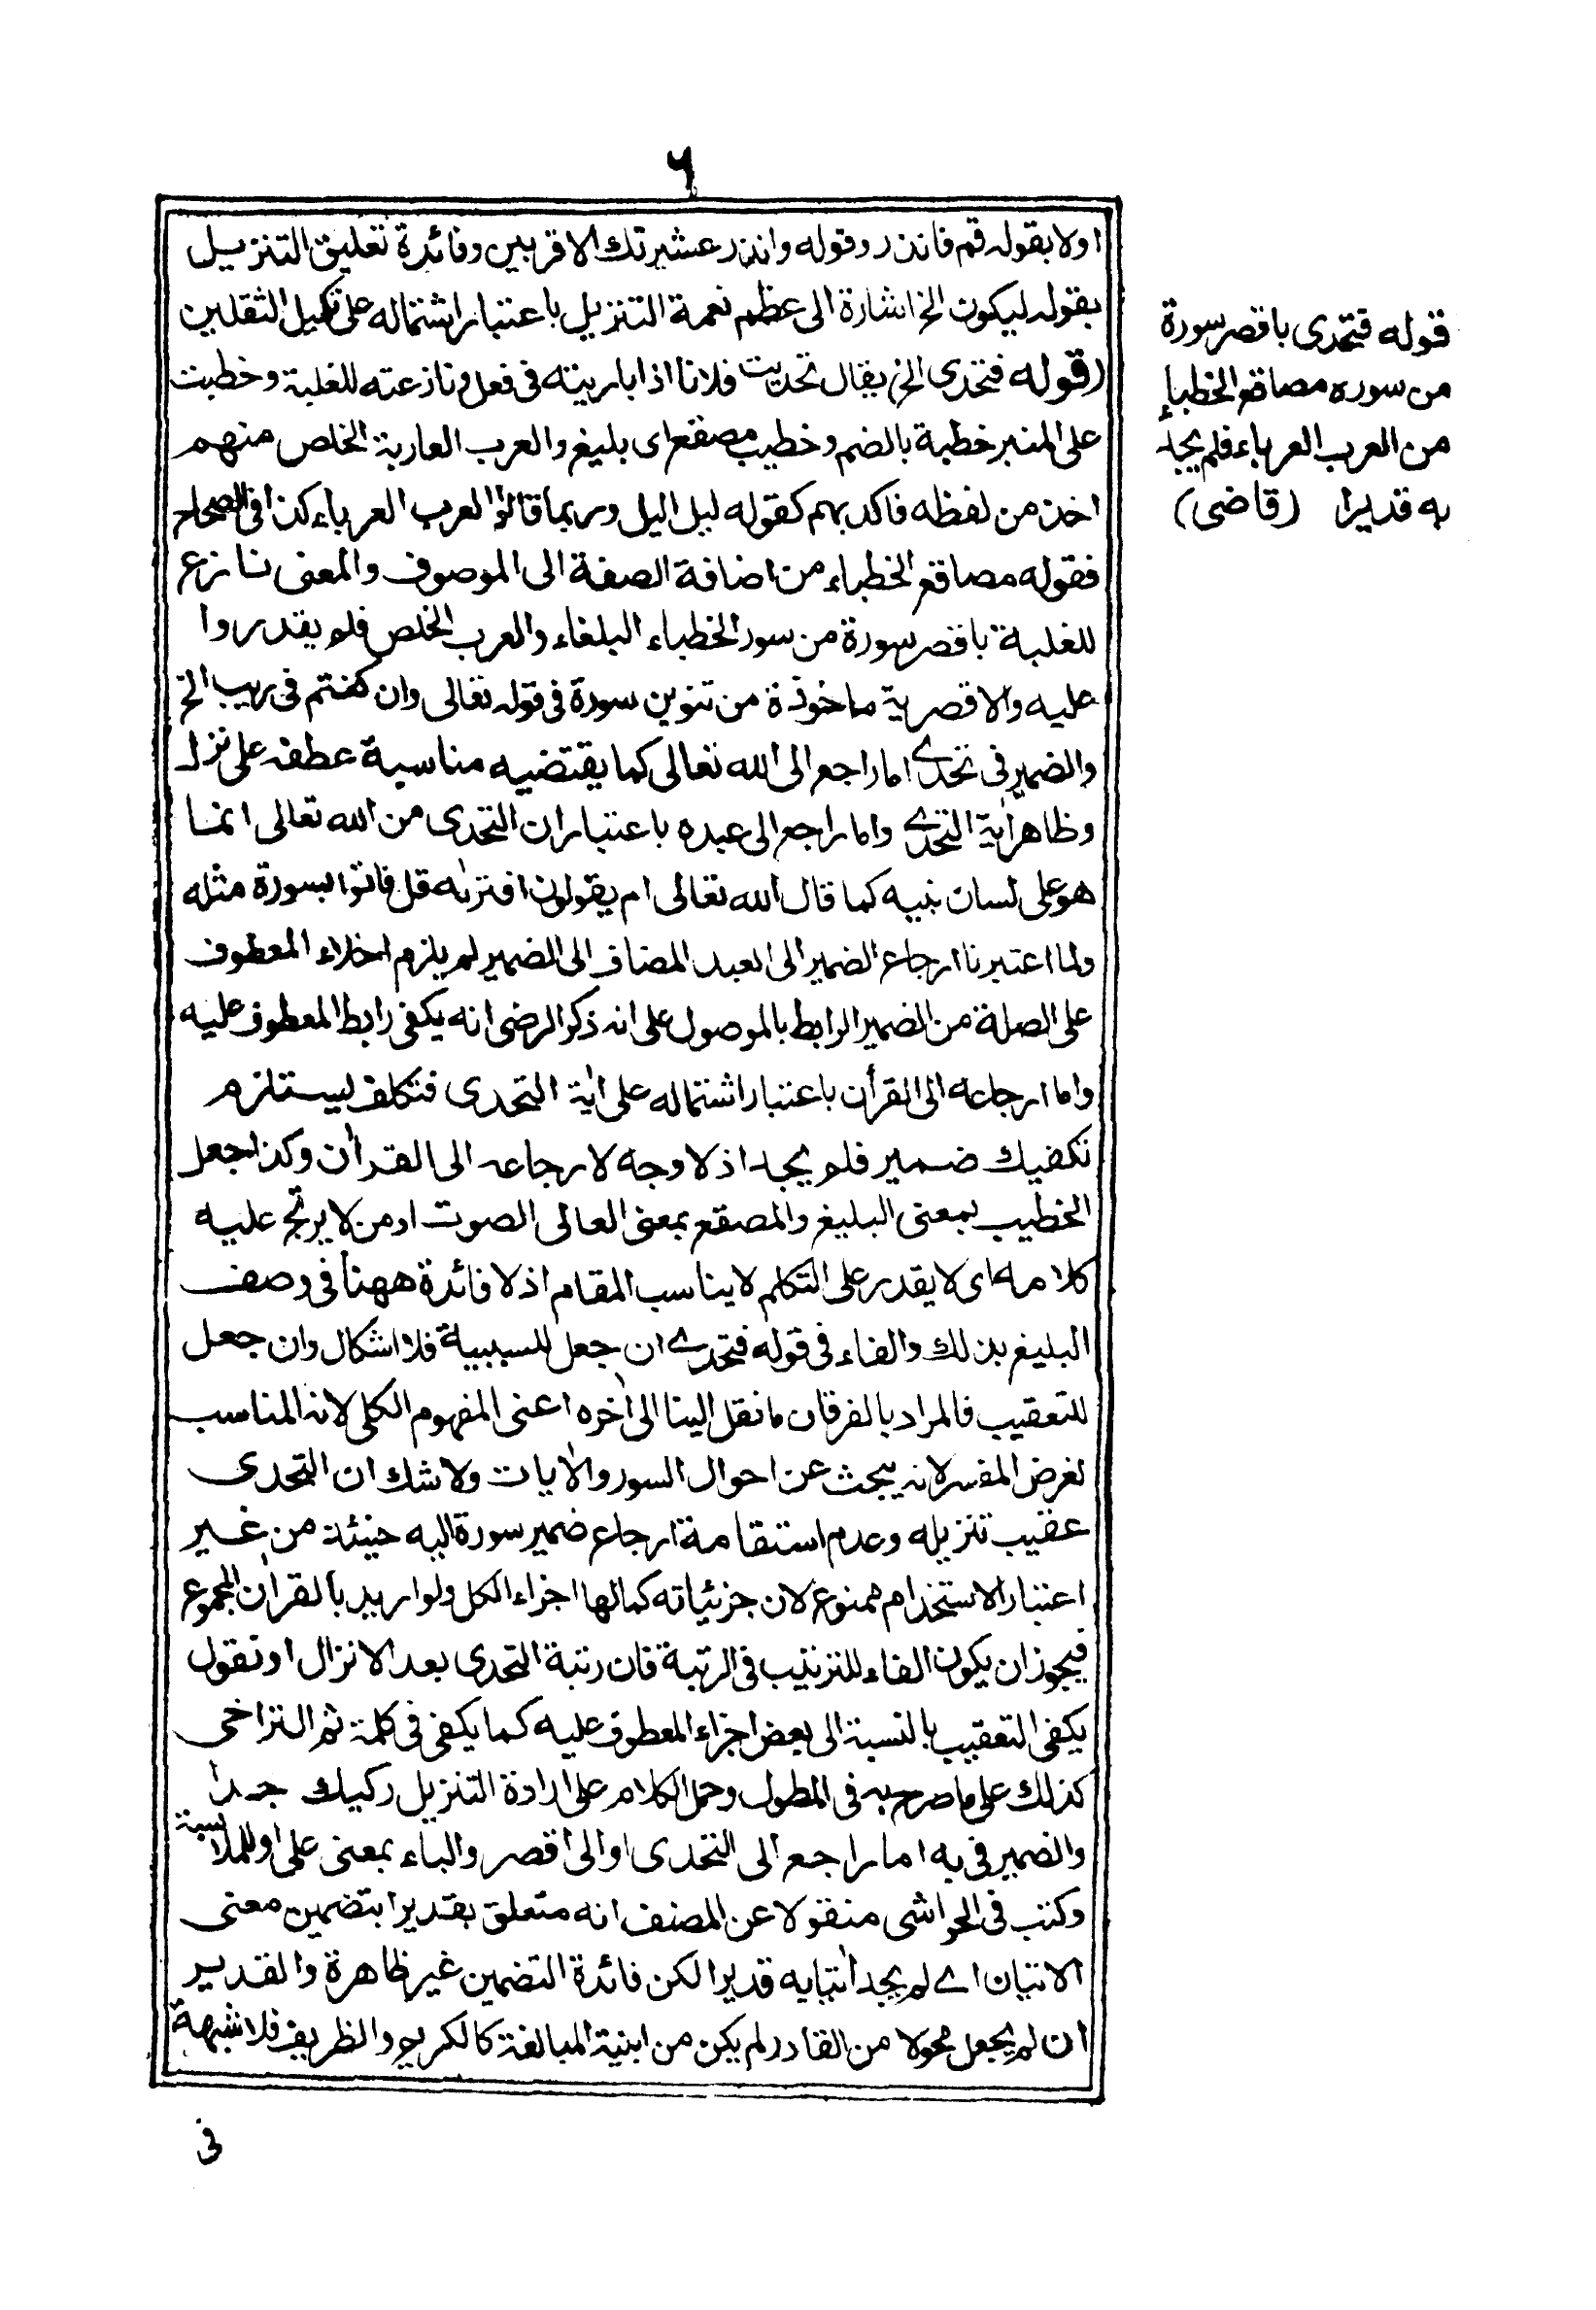 ٦
اولا بقوله قم فانذر وقوله وانذر عشيرتك الاقربين وفائدة تعليق التنزيل
بقوله ليكون الخ اشارة الى عظم نعمة التنزيل باعتبار اشتماله على تكميل الثقلين
(قوله فتحدى الخ) يقال تحديت فلانا اذا باريته فى فعل ونازعته للغلبة وخطبت
على المنبر خطبة بالضم وخطيب مصقع اى بليغ والعرب العاربة الخلص منهم
اخذ من لفظه فاكد بهم كقوله ليل اليل وربما قالوا العرب العرباء كذا فى الصحاح
فقوله مصاقع الخطباء من اضافة الصفة الى الموصوف والمعنى نازع
للغلبة باقصر سورة من سور الخطباء البلغاء والعرب الخلص فلم يقدروا
عليه والاقصرية ماخوذة من تنوين سورة فى قوله تعالى وان كنتم فى ريب الخ
والضمير فى تحدے اما راجع الى الله تعالى كما يقتضيه مناسبة عطفه على نزل
وظاهر اٰية التحدے واما راجع الى عبده باعتبار ان التحدى من الله تعالى انما
هو على لسان نبيه كما قال الله تعالى ام يقولون افترىٰه قل فاتوا بسورة مثله
ولما اعتبرنا ارجاع الضمير الى العبد المضاف الى الضمير لم يلزم اخلاء المعطوف
على الصلة من الضمير الرابط بالموصول على انه ذكر الرضى انه يكفى رابط المعطوف عليه
واما ارجاعه الى القرأن باعتبار اشتماله على اٰية التحدى فتكلف ليستلزم
تكفيك ضمير فلم يجد اذ لا وجه لارجاعه الى القراٰن وكذا جعل
الخطيب بمعنى البليغ والمصقع بمعنى العالى الصوت او من لا يرتج عليه
كلامه اى لا يقدر على التكلم لا يناسب المقام اذ لا فائدة ههنا فى وصف
البليغ بذلك والفاء فى قوله فتحدے ان جعل للسببية فلا اشكال وان جعل
للتعقيب فالمراد بالفرقان ما نقل الينا الى اٰخره اعنى المفهوم الكلى لانه المناسب
لغرض المفسر لانه يبحث عن احوال السور والاٰيات ولا شك ان التحدى
عقيب تنزيله وعدم استقامة ارجاع ضمير سورة اليه حينئذ من غير
اعتبار الاستخدام ممنوع لان جزئياته كمالها اجزاء الكل ولو اريد بالقراٰن المجموع
فيجوز ان يكون الفاء للترتيب فى الرتبة فان رتبة التحدى بعد الانزال او نقول
يكفى التعقيب بالنسبة الى بعض اجزاء المعطوف عليه كما يكفى فى كلمة ثم التراخى
كذلك على ما صرح به فى المطول وحمل الكلام على ارادة التنزيل ركيك جدا
والضمير فى به اما راجع الى التحدى او الى اقصر والباء بمعنى على او للملابسة
وكتب فى الحواشى منقولا عن المصنف انه متعلق بقديرا بتضمين معنى
الاتيان اے لم يجد اٰتيا به قديرا لكن فائدة التضمين غير ظاهرة والقدير
ان لم يجعل محولا من القادر لم يكن من ابنية المبالغة كالكريم والظريف فلا شبهة
فى
قوله فتحدى باقصر سورة
من سوره مصاقع الخطباء
من العرب العرباء فلم يجد
به قديرا (قاضى)